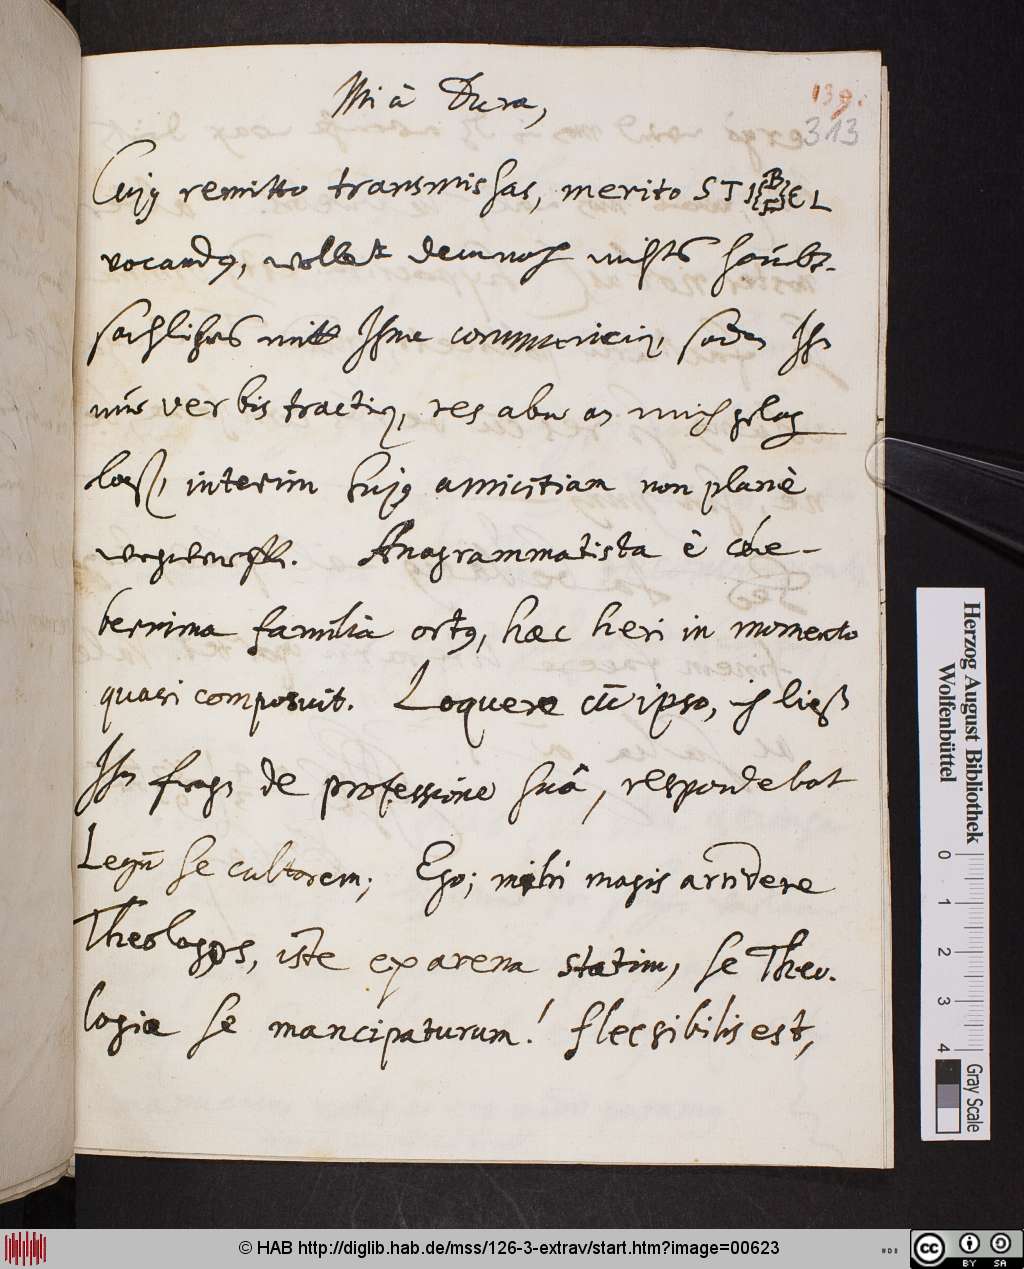 Mi â Dura,
139.
313
Cujꝰ remitto transmissas, merito STI{B/F}EL
vocandꝰ, wollet demnach nichts haubt-
sachliches mitt Ihme communicirn, sondern Ihn
nur verbis tractirn, res aber an mich gelangen
laßen, interim hujꝰ amicitiam non planè
Anagrammatista è cele-
berrima familiâ ortꝰ, haec heri in momento
quasi composuit. Loquere cū ipso, ich ließ
Ihn fragen de professione suâ, respondebat
Legū se cultorem; Ego; mihi magis arridere
Theologos, iste ex arena statim, se Theo-
logiae se mancipaturum! flecsibilis est,
Herzog August Bibliothek
Wolfenbüttel
0 1 2 3 4
Gray Scale
© HAB http://diglib.hab.de/mss/126-3-extrav/start.htm?image=00623
cc BY SA